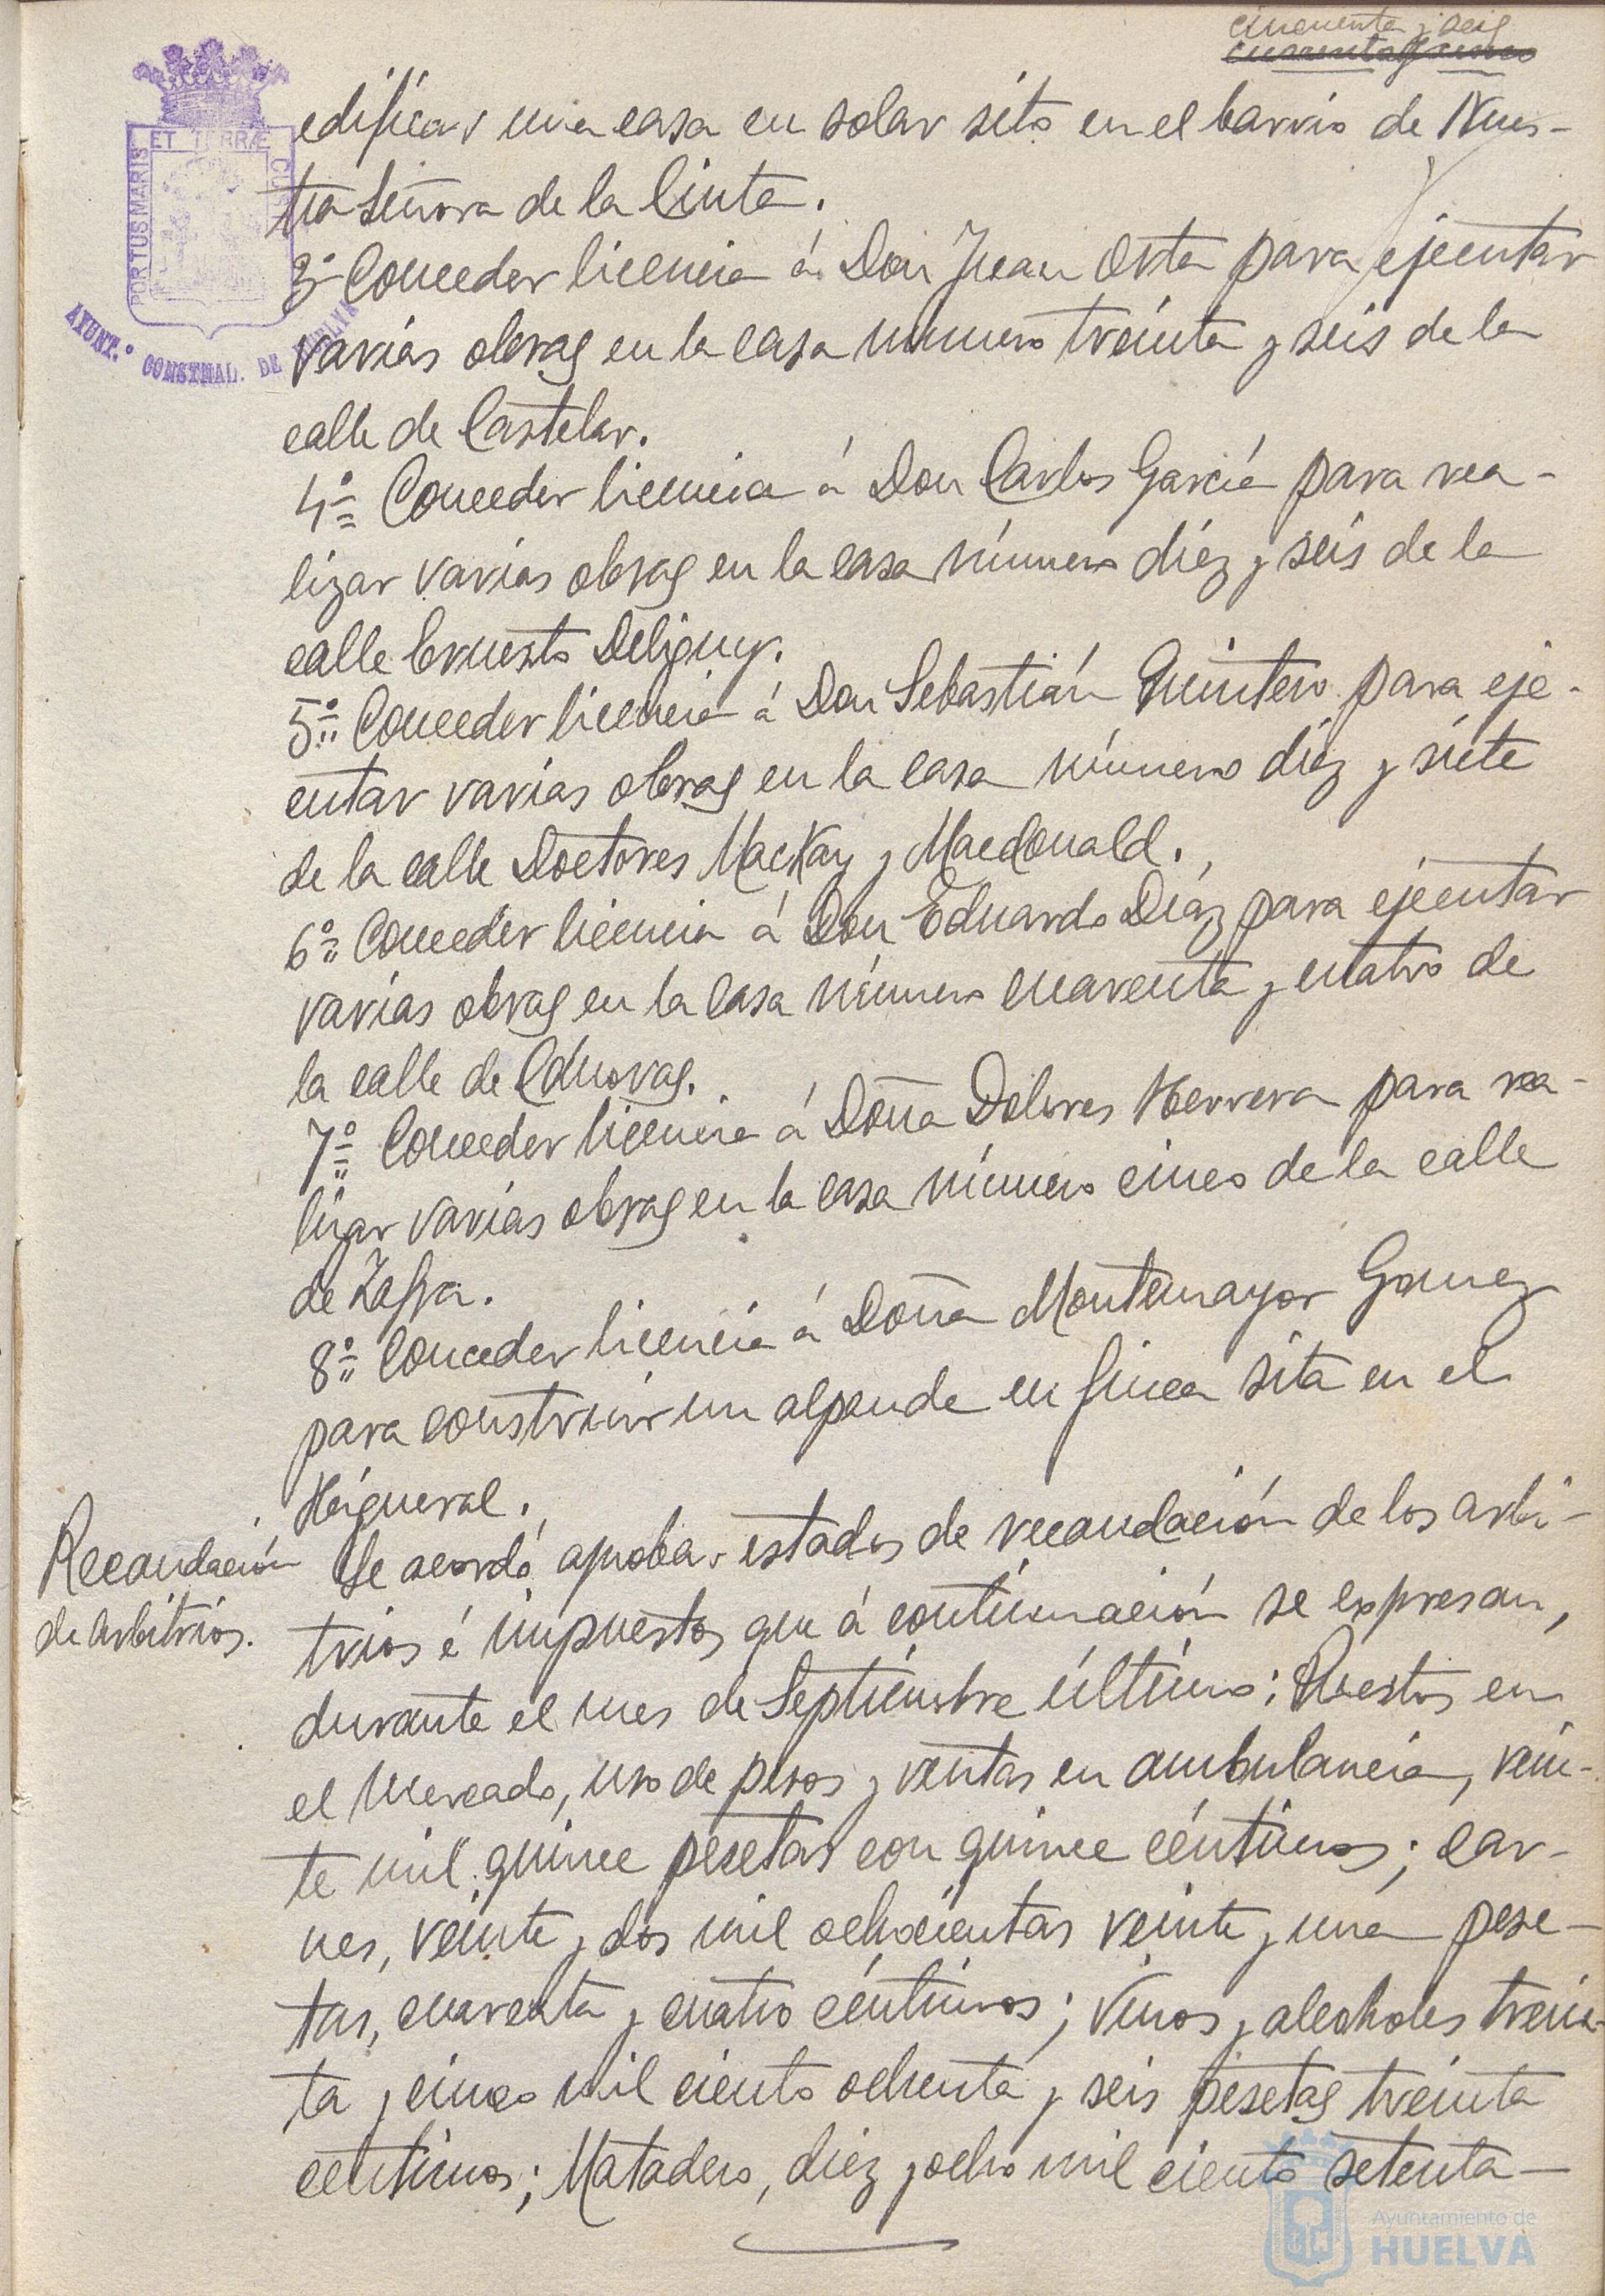 cincuenta y seis
edificar una casa en solar sito en el barrio de Nues-
tra Señora de la Cinta.
3º Conceder licencia á Don Juan Orta para ejecutar
varias obras en la casa número treinta y seis de la
calle de Castelar.
4º Conceder licencia á Don Carlos García para rea-
lizar varias obras en la casa número diez y seis de la
calle Ernesto Deligny.
5º Conceder licencia á Don Sebastián Quintero para eje-
cutar varias obras en la casa número diez y siete
de la calle Doctores MacKay y Macdonald.
6º Conceder licencia á Don Eduardo Díaz para ejecutar
varias obras en la casa número cuarenta y cuatro de
la calle de Cánovas.
7º Conceder licencia á Doña Dolores Herrera para rea-
lizar varias obras en la casa número cinco de la calle
de Zafra.
8º Conceder licencia á Doña Montemayor Gomez
para construir un alpende en finca sita en el
Higueral.
Recaudación
de arbitrios.
Se acordó aprobar estados de recaudación de los arbi-
trios é impuestos que á continuación se expresan,
durante el mes de Septiembre último: Puestos en
el Mercado, uso de pesos y ventas en ambulancia, vein-
te mil quince pesetas con quince céntimos; car-
nes, veinte y dos mil ochocientas veinte y una pese-
tas, cuarenta y cuatro céntimos; Vinos y alcoholes trein-
ta y cinco mil ciento ochenta y seis pesetas treinta
centimos; Matadero, diez y ocho mil ciento setenta
PORTUS MARIS
ET TERRÆ
AYUNT.º CONSTNAL. DE HUELVA
Ayuntamiento de
HUELVA